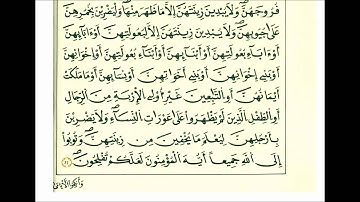 فُرُوجَهُنَّ وَلَا يُبْدِينَ زِينَتَهُنَّ إِلَّا مَا ظَهَرَ مِنْهَا وَلْيَضْرِبْنَ بِخُمُرِهِنَّ
عَلَىٰ جُيُوبِهِنَّ وَلَا يُبْدِينَ زِينَتَهُنَّ إِلَّا لِبُعُولَتِهِنَّ أَوْ ءَابَآئِهِنَّ
أَوْ ءَابَآءِ بُعُولَتِهِنَّ أَوْ أَبْنَآئِهِنَّ أَوْ أَبْنَآءِ بُعُولَتِهِنَّ أَوْ إِخْوَٰنِهِنَّ
أَوْ بَنِىٓ إِخْوَٰنِهِنَّ أَوْ بَنِىٓ أَخَوَٰتِهِنَّ أَوْ نِسَآئِهِنَّ أَوْ مَا مَلَكَتْ
أَيْمَٰنُهُنَّ أَوِ ٱلتَّٰبِعِينَ غَيْرِ أُو۟لِى ٱلْإِرْبَةِ مِنَ ٱلرِّجَالِ
أَوِ ٱلطِّفْلِ ٱلَّذِينَ لَمْ يَظْهَرُوا۟ عَلَىٰ عَوْرَٰتِ ٱلنِّسَآءِ وَلَا يَضْرِبْنَ
بِأَرْجُلِهِنَّ لِيُعْلَمَ مَا يُخْفِينَ مِن زِينَتِهِنَّ وَتُوبُوٓا۟
إِلَى ٱللَّهِ جَمِيعًا أَيُّهَ ٱلْمُؤْمِنُونَ لَعَلَّكُمْ تُفْلِحُونَ ٣١
وَأَنكِحُوا۟ ٱلْأَيَٰمَىٰ